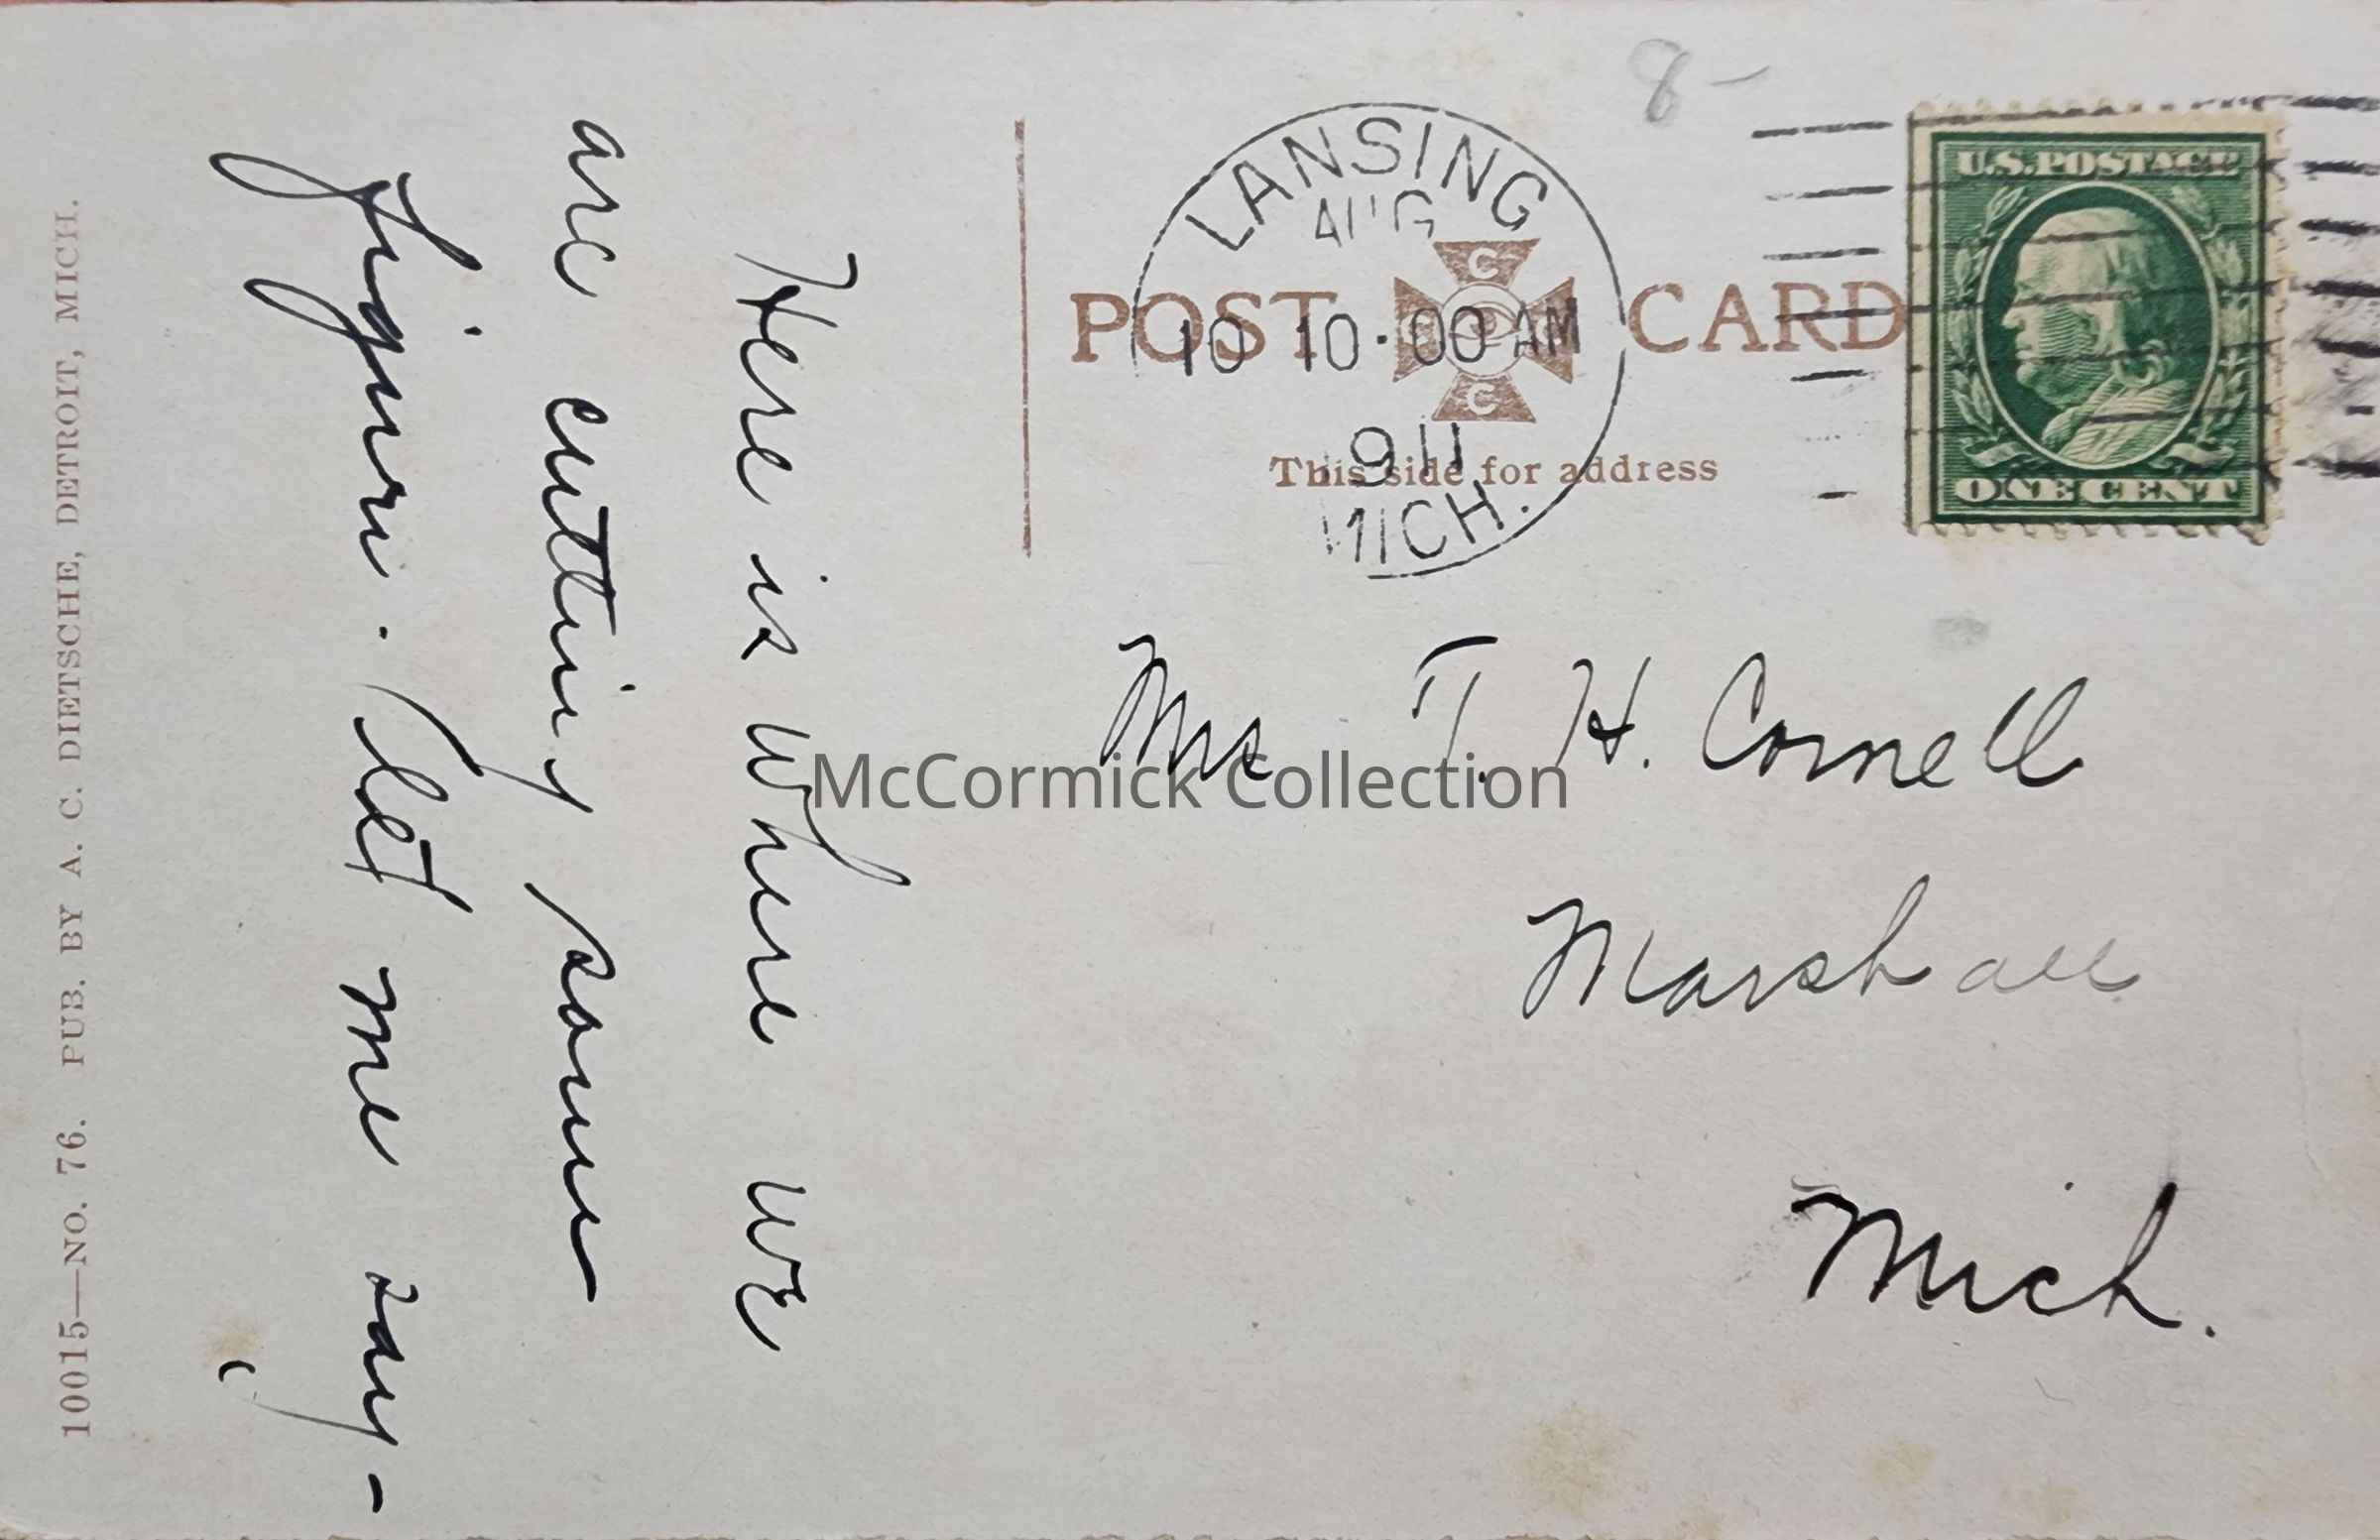 8-
LANSING
AUG
10 10·00 AM
911
MICH.
POST CARD
C
C
This side for address
U.S. POSTAGE
ONE CENT
Here is where we
are cutting some
figure. Let me say-
Mrs T. H. Cornell
Marshall
Mich.
10015—NO. 76. PUB. BY A. C. DIETSCHE, DETROIT, MICH.
McCormick Collection